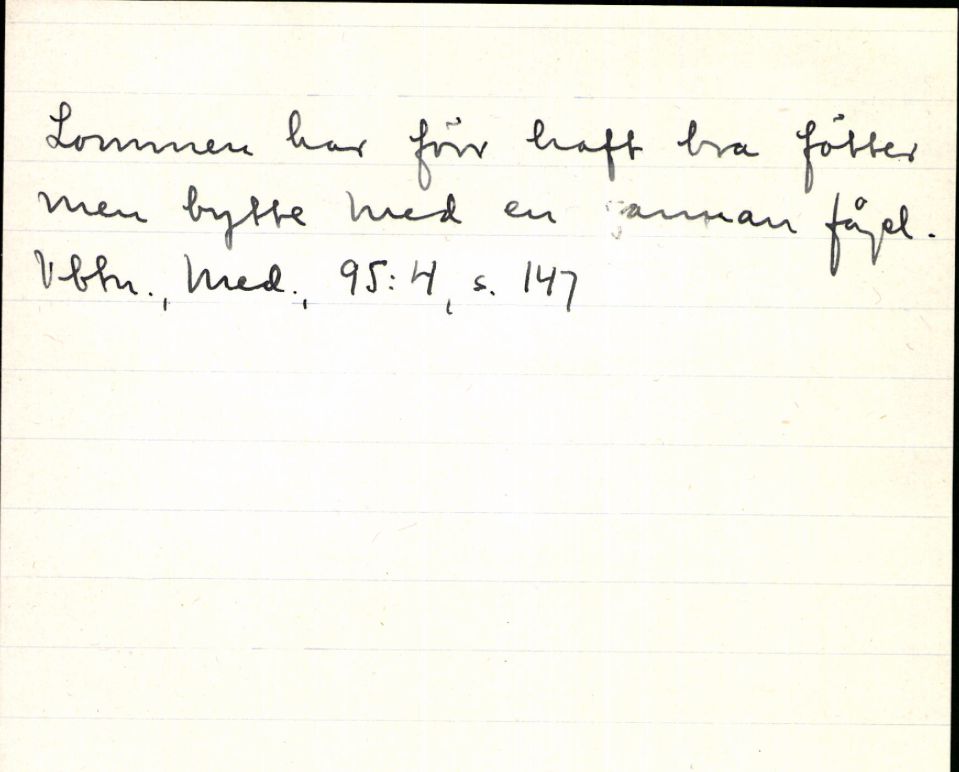 Lommen har förr haft bra fötter
men bytte med en annan fågel.
Vbtn., Med., 95:4, s. 147